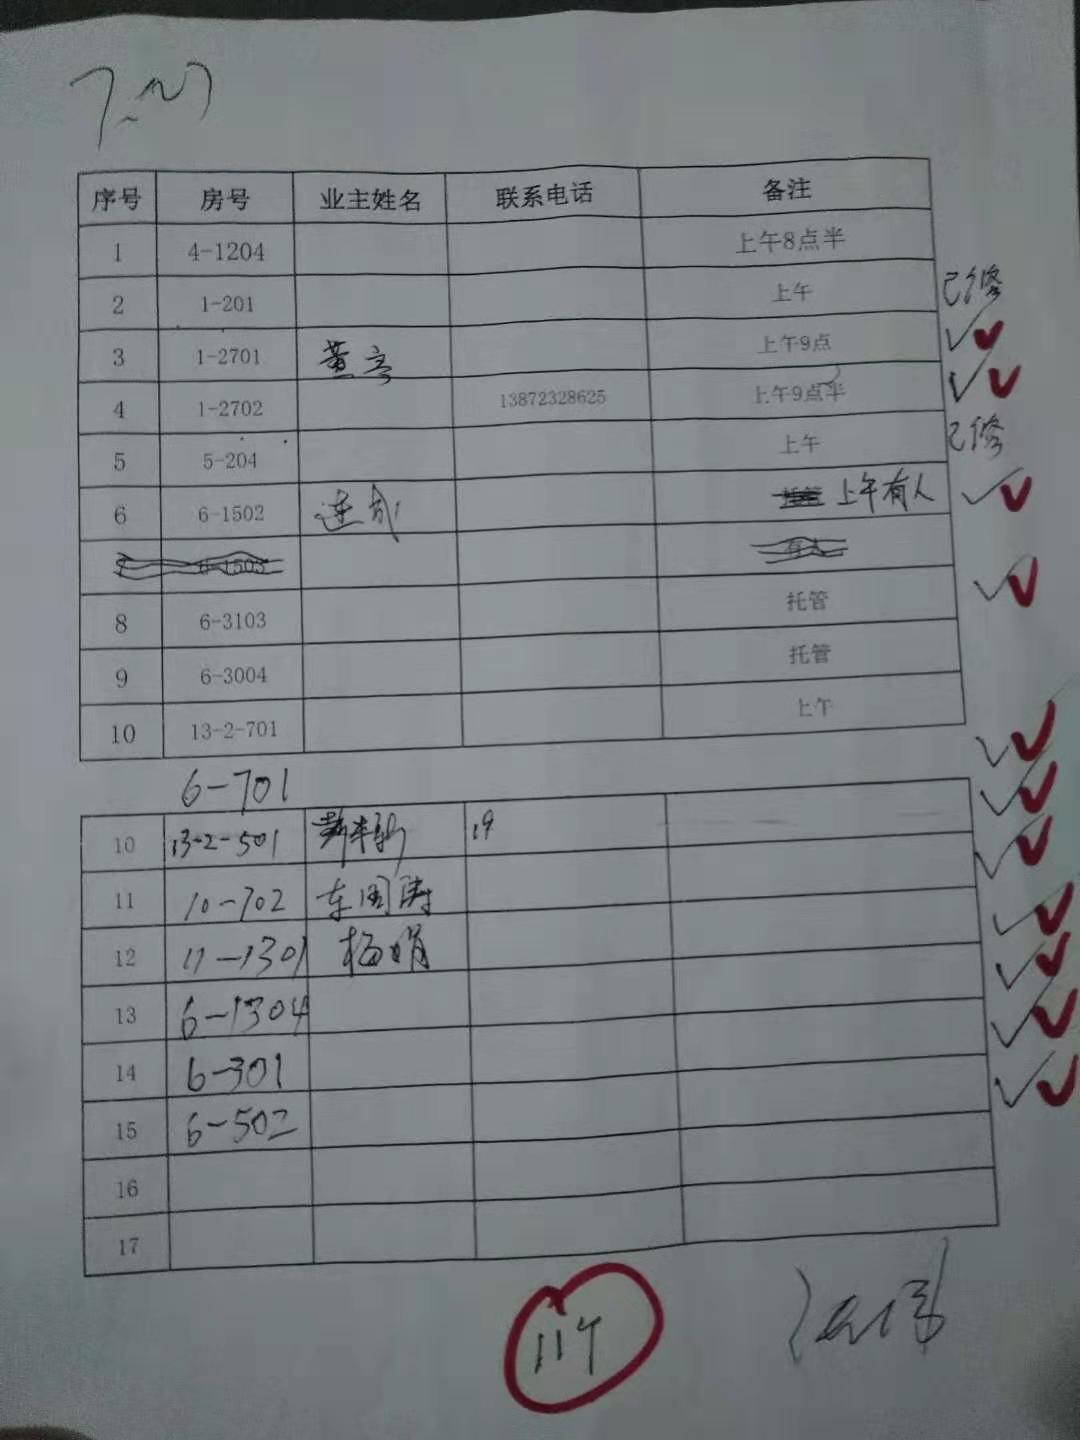 7.27
序号 房号 业主姓名 联系电话 备注
1 4-1204 上午8点半
2 1-201 上午 已修
3 1-2701 董亮 上午9点
4 1-2702 13872328625 上午9点半
5 5-204 上午 已修
6 6-1502 上午有人
6-1503 有人
8 6-3103 托管
9 6-3004 托管
10 13-2-701 上午
6-701
10 13-2-501 19
11 10-702 车国涛
12 11-1301 杨娟
13 6-1304
14 6-301
15 6-502
16
17
11个